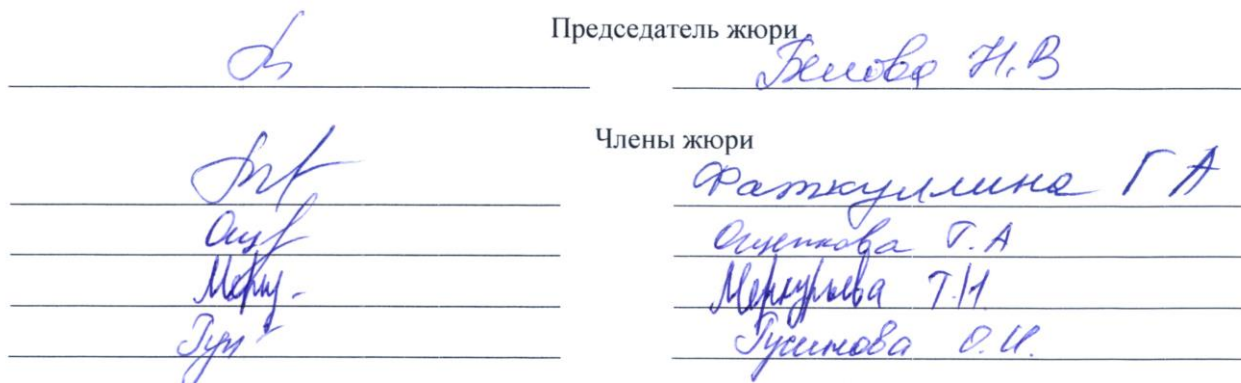 Председатель жюри
Белова Н.В
Члены жюри
Фаткуллина Г А
Ощепкова Т.А
Меркурьева Т.Н
О.И.